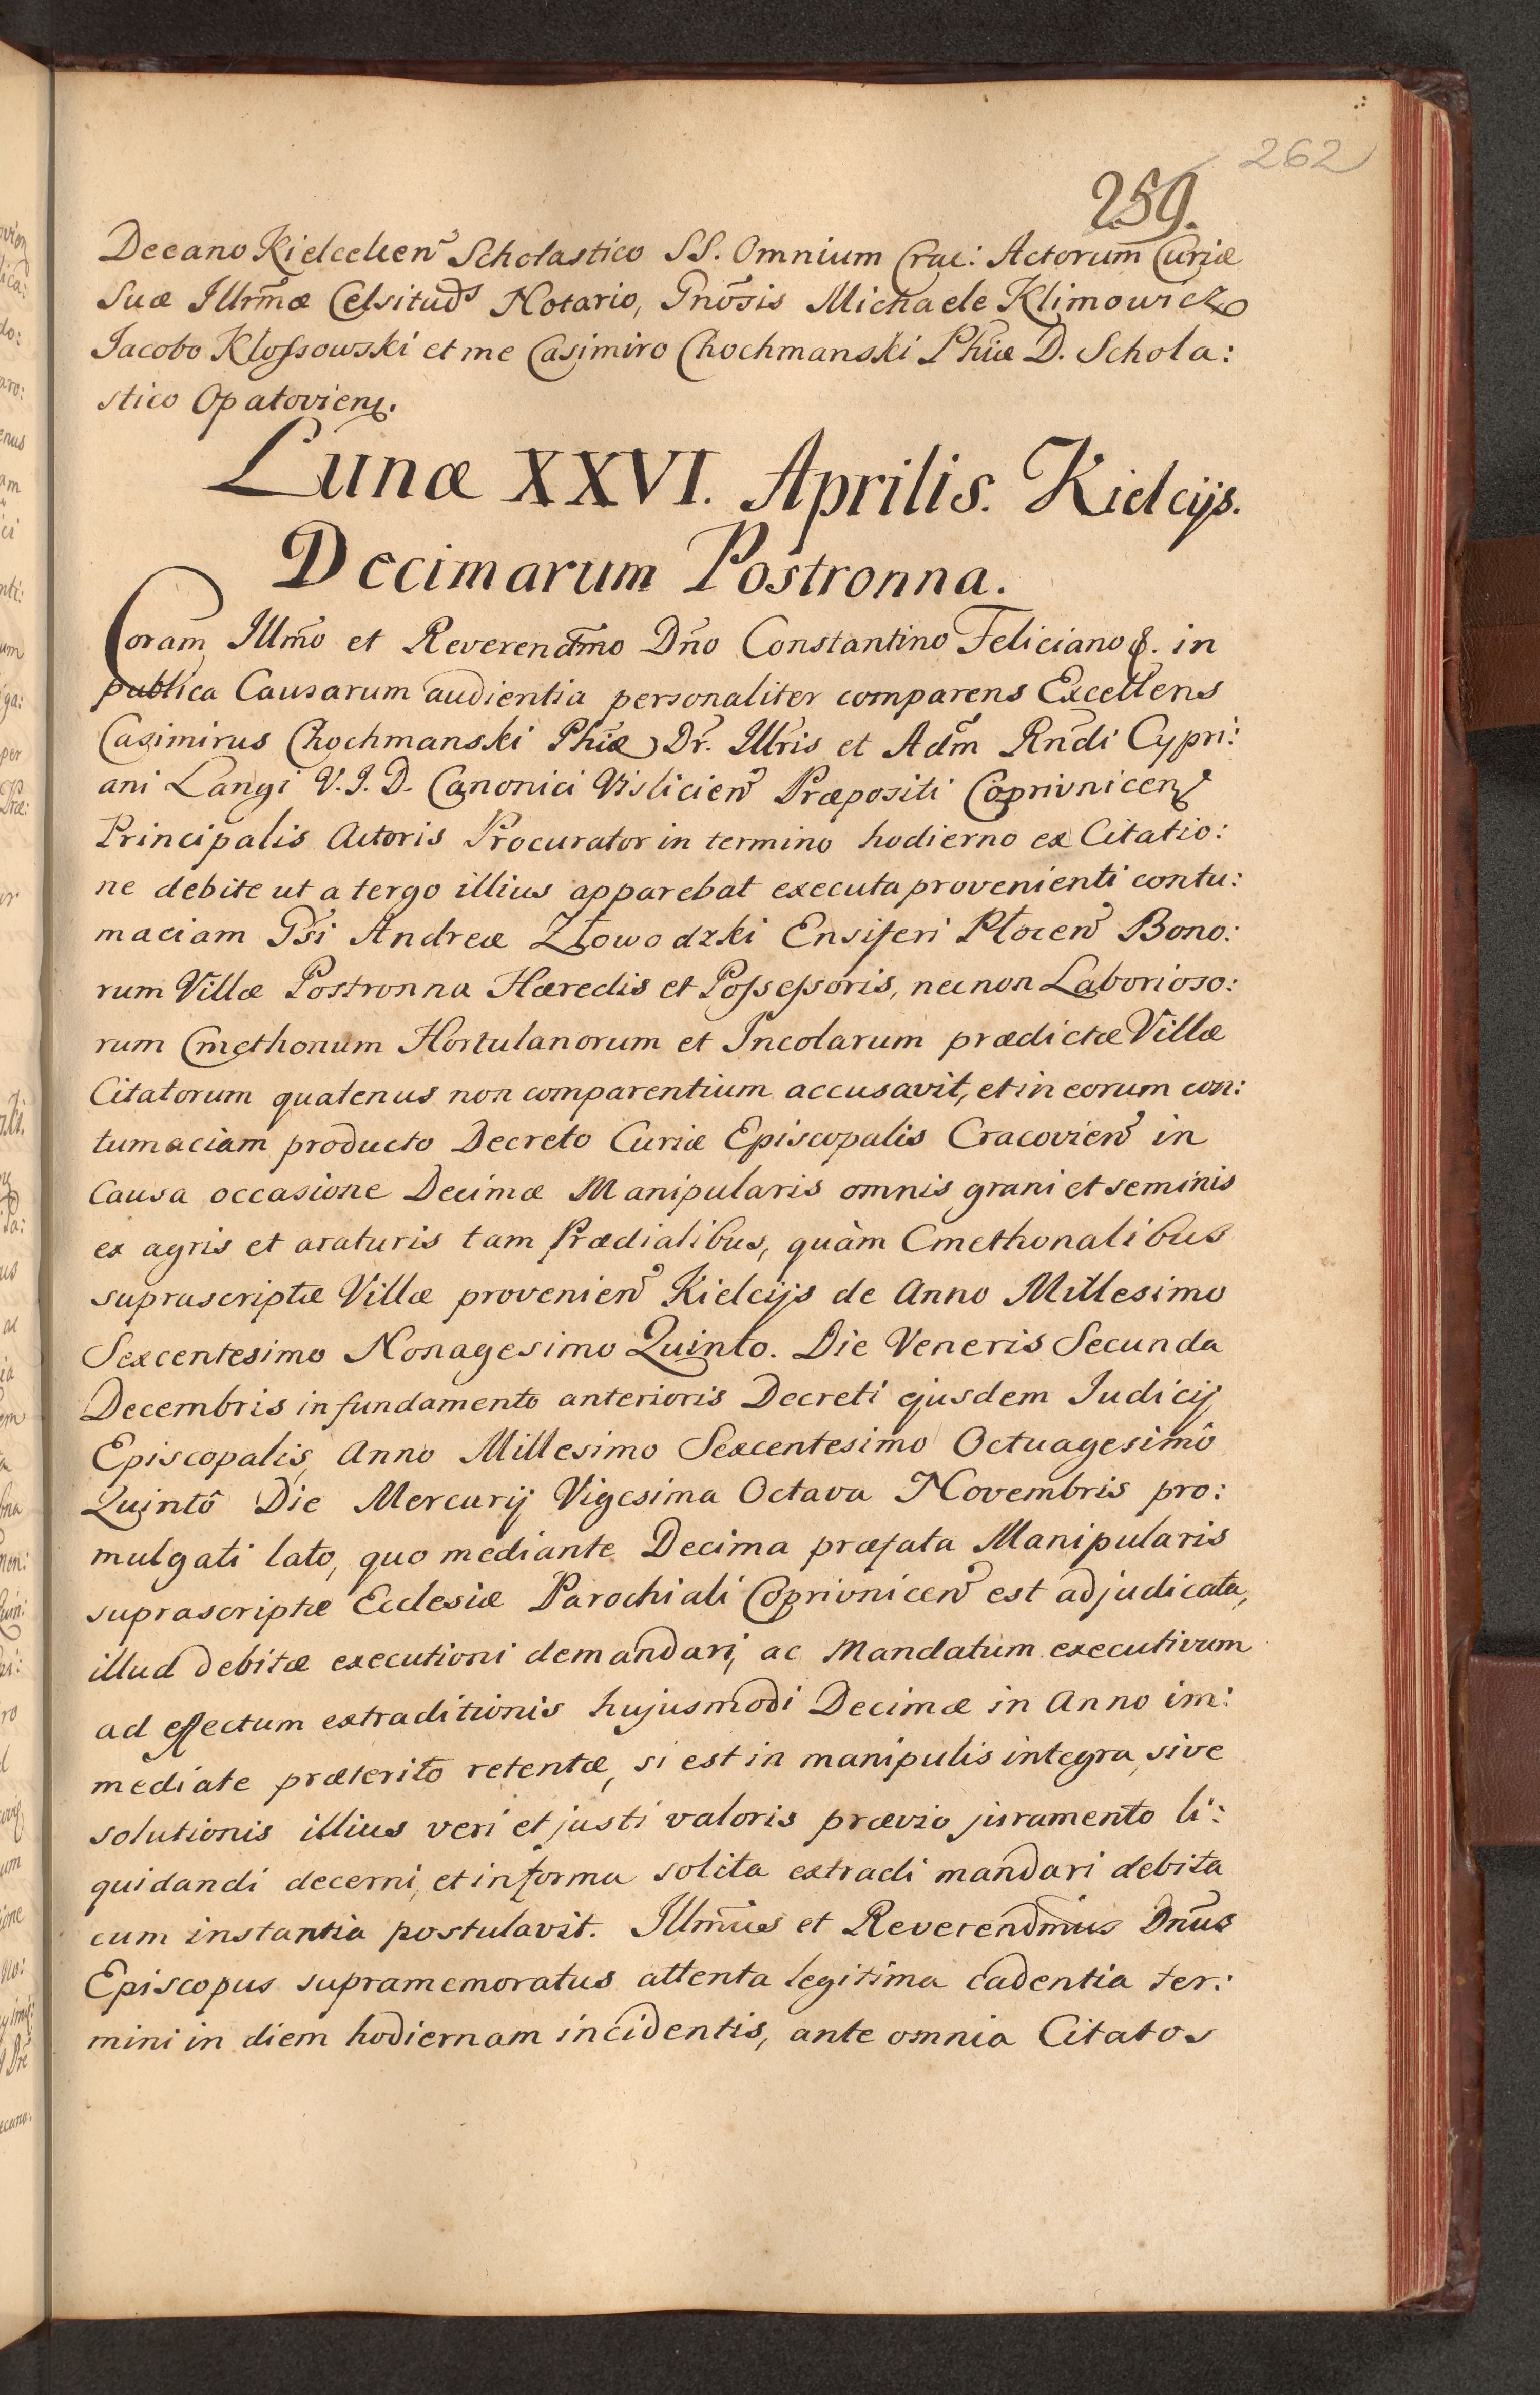 262
259.
Decano Kielceñ Scholastico SS. Omnium Crac: Actorum Curiæ
Suæ Illrm̃æ Celsitud̃s Notario, Gnõsis Michaele Klimowicz
Iacobo Kloſsowski et me Casimiro Chochmanski Phiæ D. Schola:
stico Opatovien̨.
Lunæ XXVI. Aprilis. Kielcijs.
Decimarum Postronna.
Coram Illm̃o et Reverendm̃o Dño Constantino Feliciano &. in
publica Causarum audientia personaliter comparens Excellens
Casimirus Chochmanski Phiæ Dr̃. Illr̃is et Adm̃ Rñdi Cypri:
ani Langi V.I.D. Canonici Vislicieñ Præpositi Coprivnicen̨
Principalis Actoris Procurator in termino hodierno ex Citatio:
ne debite ut a tergo illius apparebat executa provenienti contu:
maciam Gsĩ Andreæ Złowodzki Ensiferi Płoceñ Bono:
rum Villæ Postronna Hæredis et Poſseſsoris, necnon Laborioso:
rum Cmethonum Hortulanorum et Incolarum prædictæ Villæ
Citatorum quatenus non comparentium accusavit, et in eorum con:
tumaciam producto Decreto Curiæ Episcopalis Cracovieñ in
Causa occasione Decimæ Manipularis omnis grani et seminis
ex agris et araturis tam Prædialibus, quàm Cmethonalibus
suprascriptæ Villæ provenieñ Kielcijs de Anno Millesimo
Sexcentesimo Nonagesimo Quinto. Die Veneris Secunda
Decembris in fundamento anterioris Decreti ejusdem Iudicij
Episcopalis, Anno Millesimo Sexcentesimo Octuagesimô
Quintô Die Mercurij Vigesima Octava Novembris pro:
mulgati lato, quo mediante Decima præfata Manipularis
suprascriptæ Ecclesiæ Parochiali Coprivniceñ est adjudicata,
illud debitæ executioni demandari, ac Mandatum executivum
ad effectum extraditionis hujusmodi Decimæ in Anno im:
mediate præterito retentæ, si est in manipulis integra, sive
solutionis illius veri et justi valoris prævio juramento li:
quidandi decerni, et in forma solita extradi mandari debita
cum instantia postulavit. Illm̃us et Reverendm̃us Dñus
Episcopus supramemoratus attenta legitima cadentia ter:
mini in diem hodiernam incidentis, ante omnia Citatos